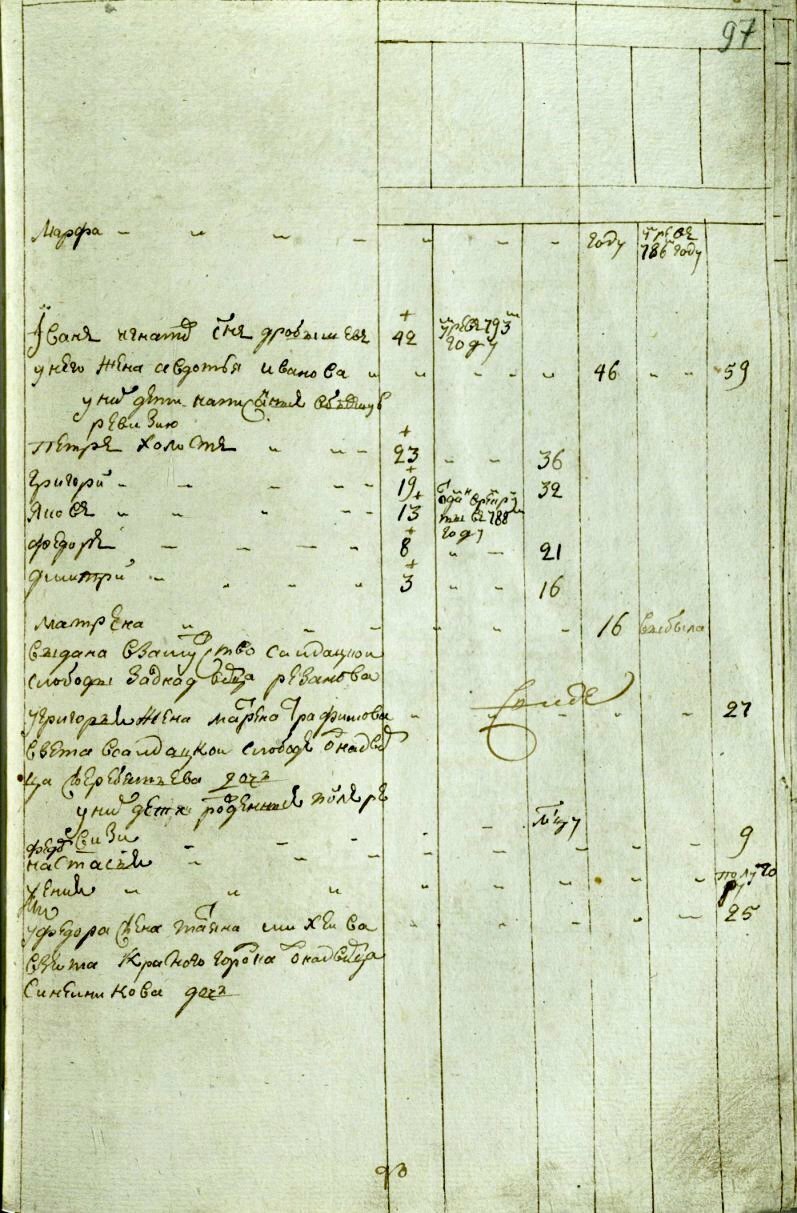 97
Марфа году умре в 786 году
Иванъ игнатов сынъ дробышевъ 42 умре в 793 году
у него жена авдотья иванова 46 59
у них дети написанныя в бывшую
ревизию
петръ холостъ 23 36
Григорий 19 32
Яковъ 13 отдан в рекруты въ 788 году
федоръ 8 21
Димитрий 3 16
Матрена 16 выбыла
выдана в замужство салдацкой
слободы за однодворца резанова
у Григорья жена марфа трафимова 27
взета в салдацкой слободе однодвор
ца дочь
у них дети рожденныя после ре
визии
федор году
настасья 9
ксения полуго
ду
у федора жена татьяна михеива 25
взета Красного города однодворца
Синеникова дочь
90